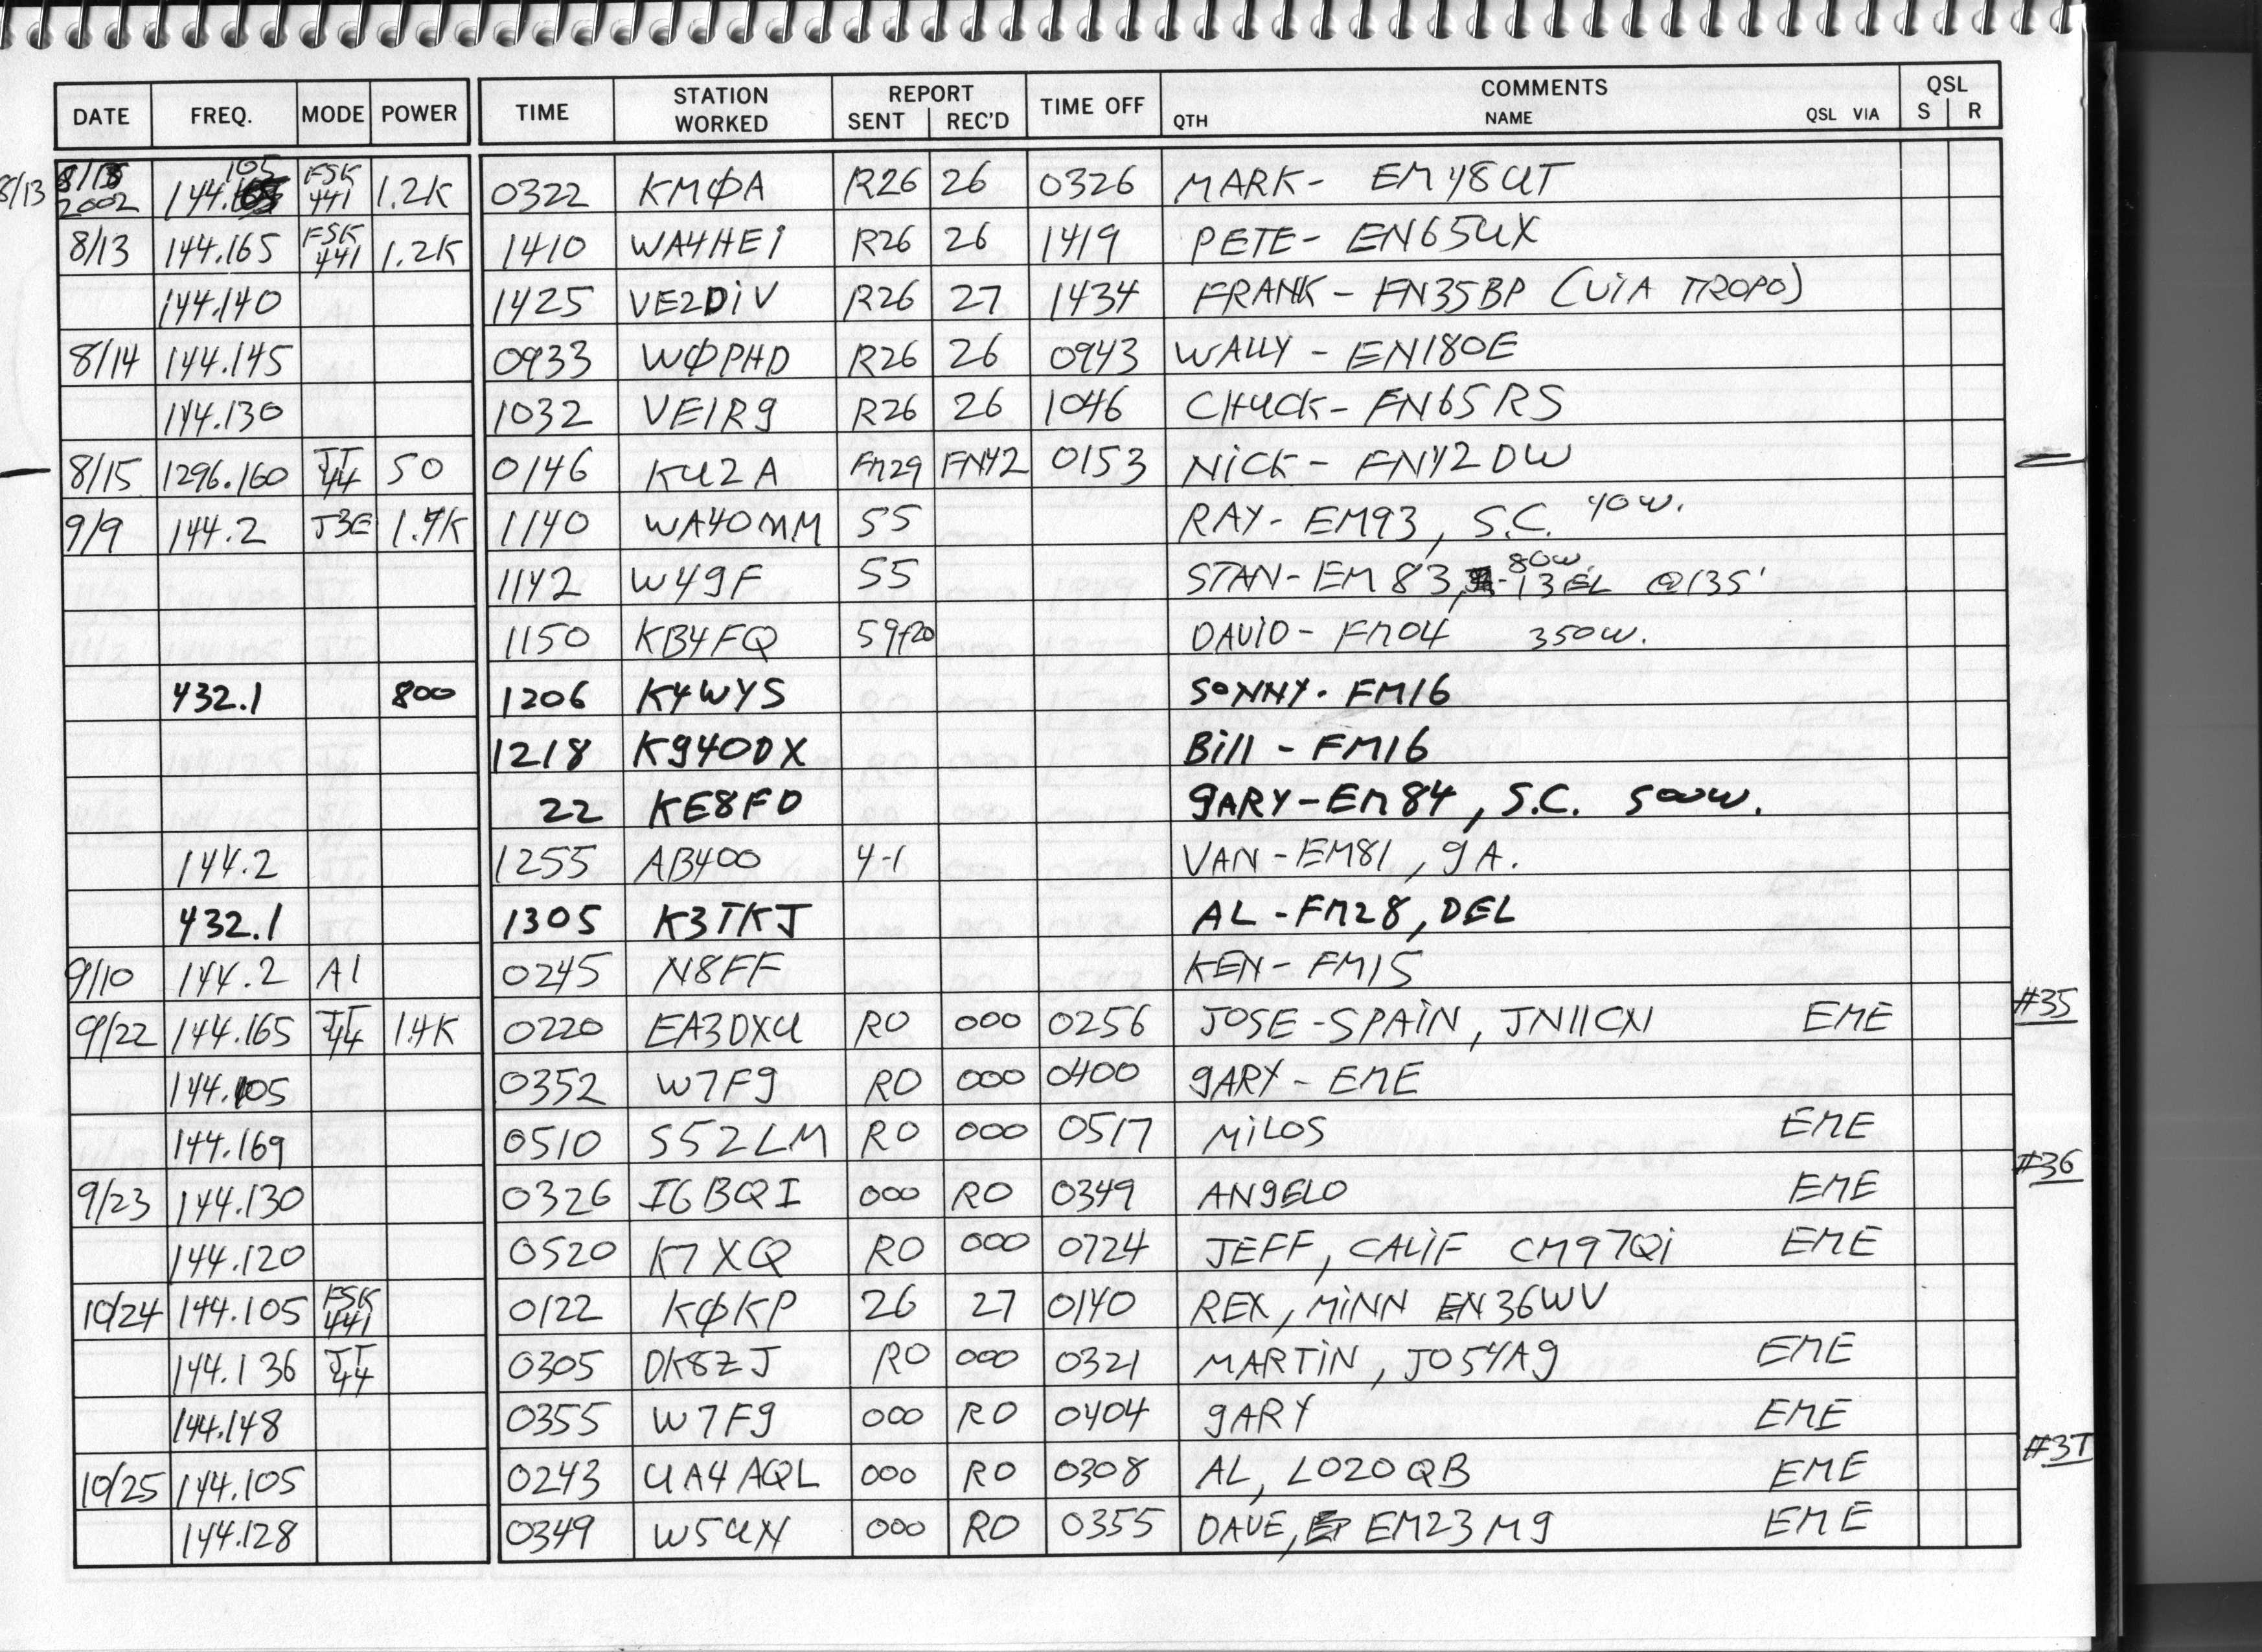 DATE FREQ. MODE POWER TIME STATION WORKED REPORT SENT REC'D TIME OFF QTH COMMENTS NAME QSL VIA QSL S R
8/13 8/13 2002 144.105 FSK 441 1.2K 0322 KMØA R26 26 0326 MARK- EM48UT
8/13 144.165 FSK 441 1.2K 1410 WA4HEI R26 26 1419 PETE- EN65UX
144.140 1425 VE2DiV R26 27 1434 FRANK- FN35BP (ViA TROPO)
8/14 144.145 0933 WØPHD R26 26 0943 WALLY - EN18OE
144.130 1032 VE1RG R26 26 1046 CHUCK- FN65RS
8/15 1296.160 JT 44 50 0146 KU2A FM29 FN42 0153 NiCK- FN42DW
9/9 144.2 J3E 1.4K 1140 WA4OMM 55 RAY- EM93, S.C. 40W.
1142 W4GF 55 STAN-EM83, 80W. -13EL @135'
1150 KB4FQ 59+20 DAViD- FM04 350W.
432.1 800 1206 K4WYS SONNY- FM16
1218 KG4ODX Bill - FM16
22 KE8FD GARY-EM84, S.C. 500W.
144.2 1255 AB4OO 4-1 VAN-EM81, GA.
432.1 1305 K3TKJ AL-FM28, DEL
9/10 144.2 A1 0245 N8FF KEN- FM15
9/22 144.165 JT 44 1.4K 0220 EA3DXU RO 000 0256 JOSE-SPAiN, JN11CN EME #35
144.105 0352 W7FG RO 000 0400 GARY- EME
144.169 0510 S52LM RO 000 0517 MiLOS EME #36
9/23 144.130 0326 I6BQI 000 RO 0349 ANGELO EME
144.120 0520 K7XQ RO 000 0724 JEFF, CALiF CM97Qi EME
10/24 144.105 FSK 441 0122 KØKP 26 27 0140 REX, MiNN EN36WV
144.136 JT 44 0305 DK8ZJ RO 000 0321 MARTiN, JO54AG EME
144.148 0355 W7FG 000 RO 0404 GARY EME
10/25 144.105 0243 UA4AQL 000 RO 0308 AL, LO20QB EME #37
144.128 0349 W5UN 000 RO 0355 DAVE, EM23MG EME